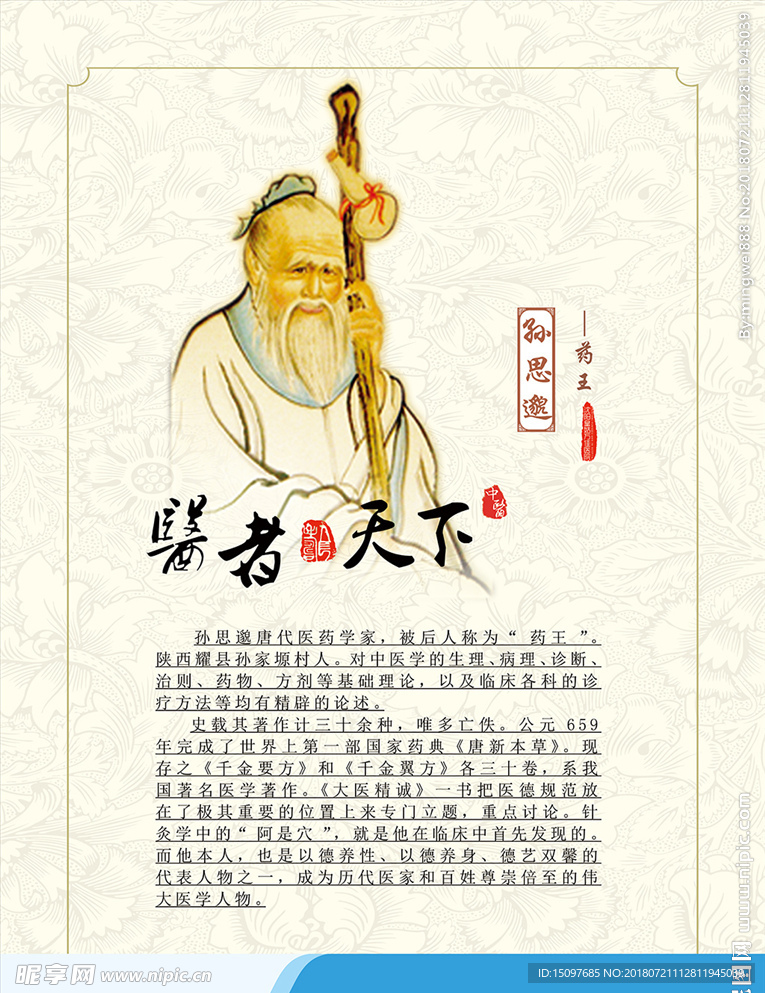 孙思邈
——药王
醫者天下
中醫
孙思邈唐代医药学家，被后人称为“ 药王 ”。
陕西耀县孙家塬村人。对中医学的生理、病理、诊断、
治则、药物、方剂等基础理论，以及临床各科的诊
疗方法等均有精辟的论述。
史载其著作计三十余种，唯多亡佚。公元 659
年完成了世界上第一部国家药典《唐新本草》。现
存之《千金要方》和《千金翼方》各三十卷，系我
国著名医学著作。《大医精诚》一书把医德规范放
在了极其重要的位置上来专门立题，重点讨论。针
灸学中的“ 阿是穴 ”，就是他在临床中首先发现的。
而他本人，也是以德养性、以德养身、德艺双馨的
代表人物之一，成为历代医家和百姓尊崇倍至的伟
大医学人物。
By:mingwei888 No:20180721112811945039
昵图网 www.nipic.com
昵享网 www.nipic.cn
ID:15097685 NO:20180721112811945039